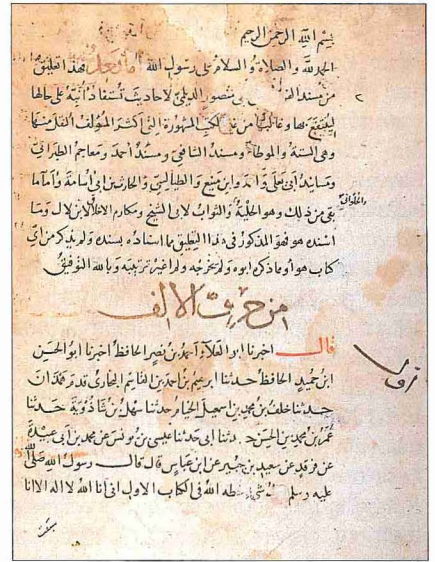 بسم الله الرحمن الرحيم
الحمد لله والصلاة والسلام على رسول الله أما بعد فهذا تعليق
من مسند منصور الديلمي لأحاديث تستفاد على حالها
لينتفع بها وغالبها من غير الكتب المشهورة التي أكثر المؤلف النقل منها
وهي الستة والموطأ ومسند الشافعي ومسند أحمد ومعاجم الطبراني
ومسانيد أبي يعلى وابن منيع والطيالسي والحارث بن أبي أسامة وأما ما
بقي من ذلك وهو الحلية والثواب لأبي الشيخ ومكارم الأخلاق لابن لال وما
أسنده هو فهو المذكور في هذا التعليق بما إسناده بسنده ولم يذكر من أي
كتاب هو أو ما ذكره أبوه ولم يخرجه ولم أغير ترتيبه وبالله التوفيق
من حرف الألف
قال أخبرنا أبو العلاء أحمد بن نصر الحافظ أخبرنا أبو الحسن
ابن حميد الحافظ حدثنا إبراهيم بن أحمد بن القاسم البخاري قدم
حدثنا خلف بن محمد بن إسماعيل الخيام حدثنا سهل بن شاذويه حدثنا
عمر بن محمد بن الحسن حدثنا أبي حدثنا عيسى بن يونس عن محمد بن أبي عبيدة
عن فرقد عن سعيد بن جبير عن ابن عباس قال قال رسول الله صلى الله
عليه وسلم خطه الله في الكتاب الأول أني أنا الله لا إله إلا أنا